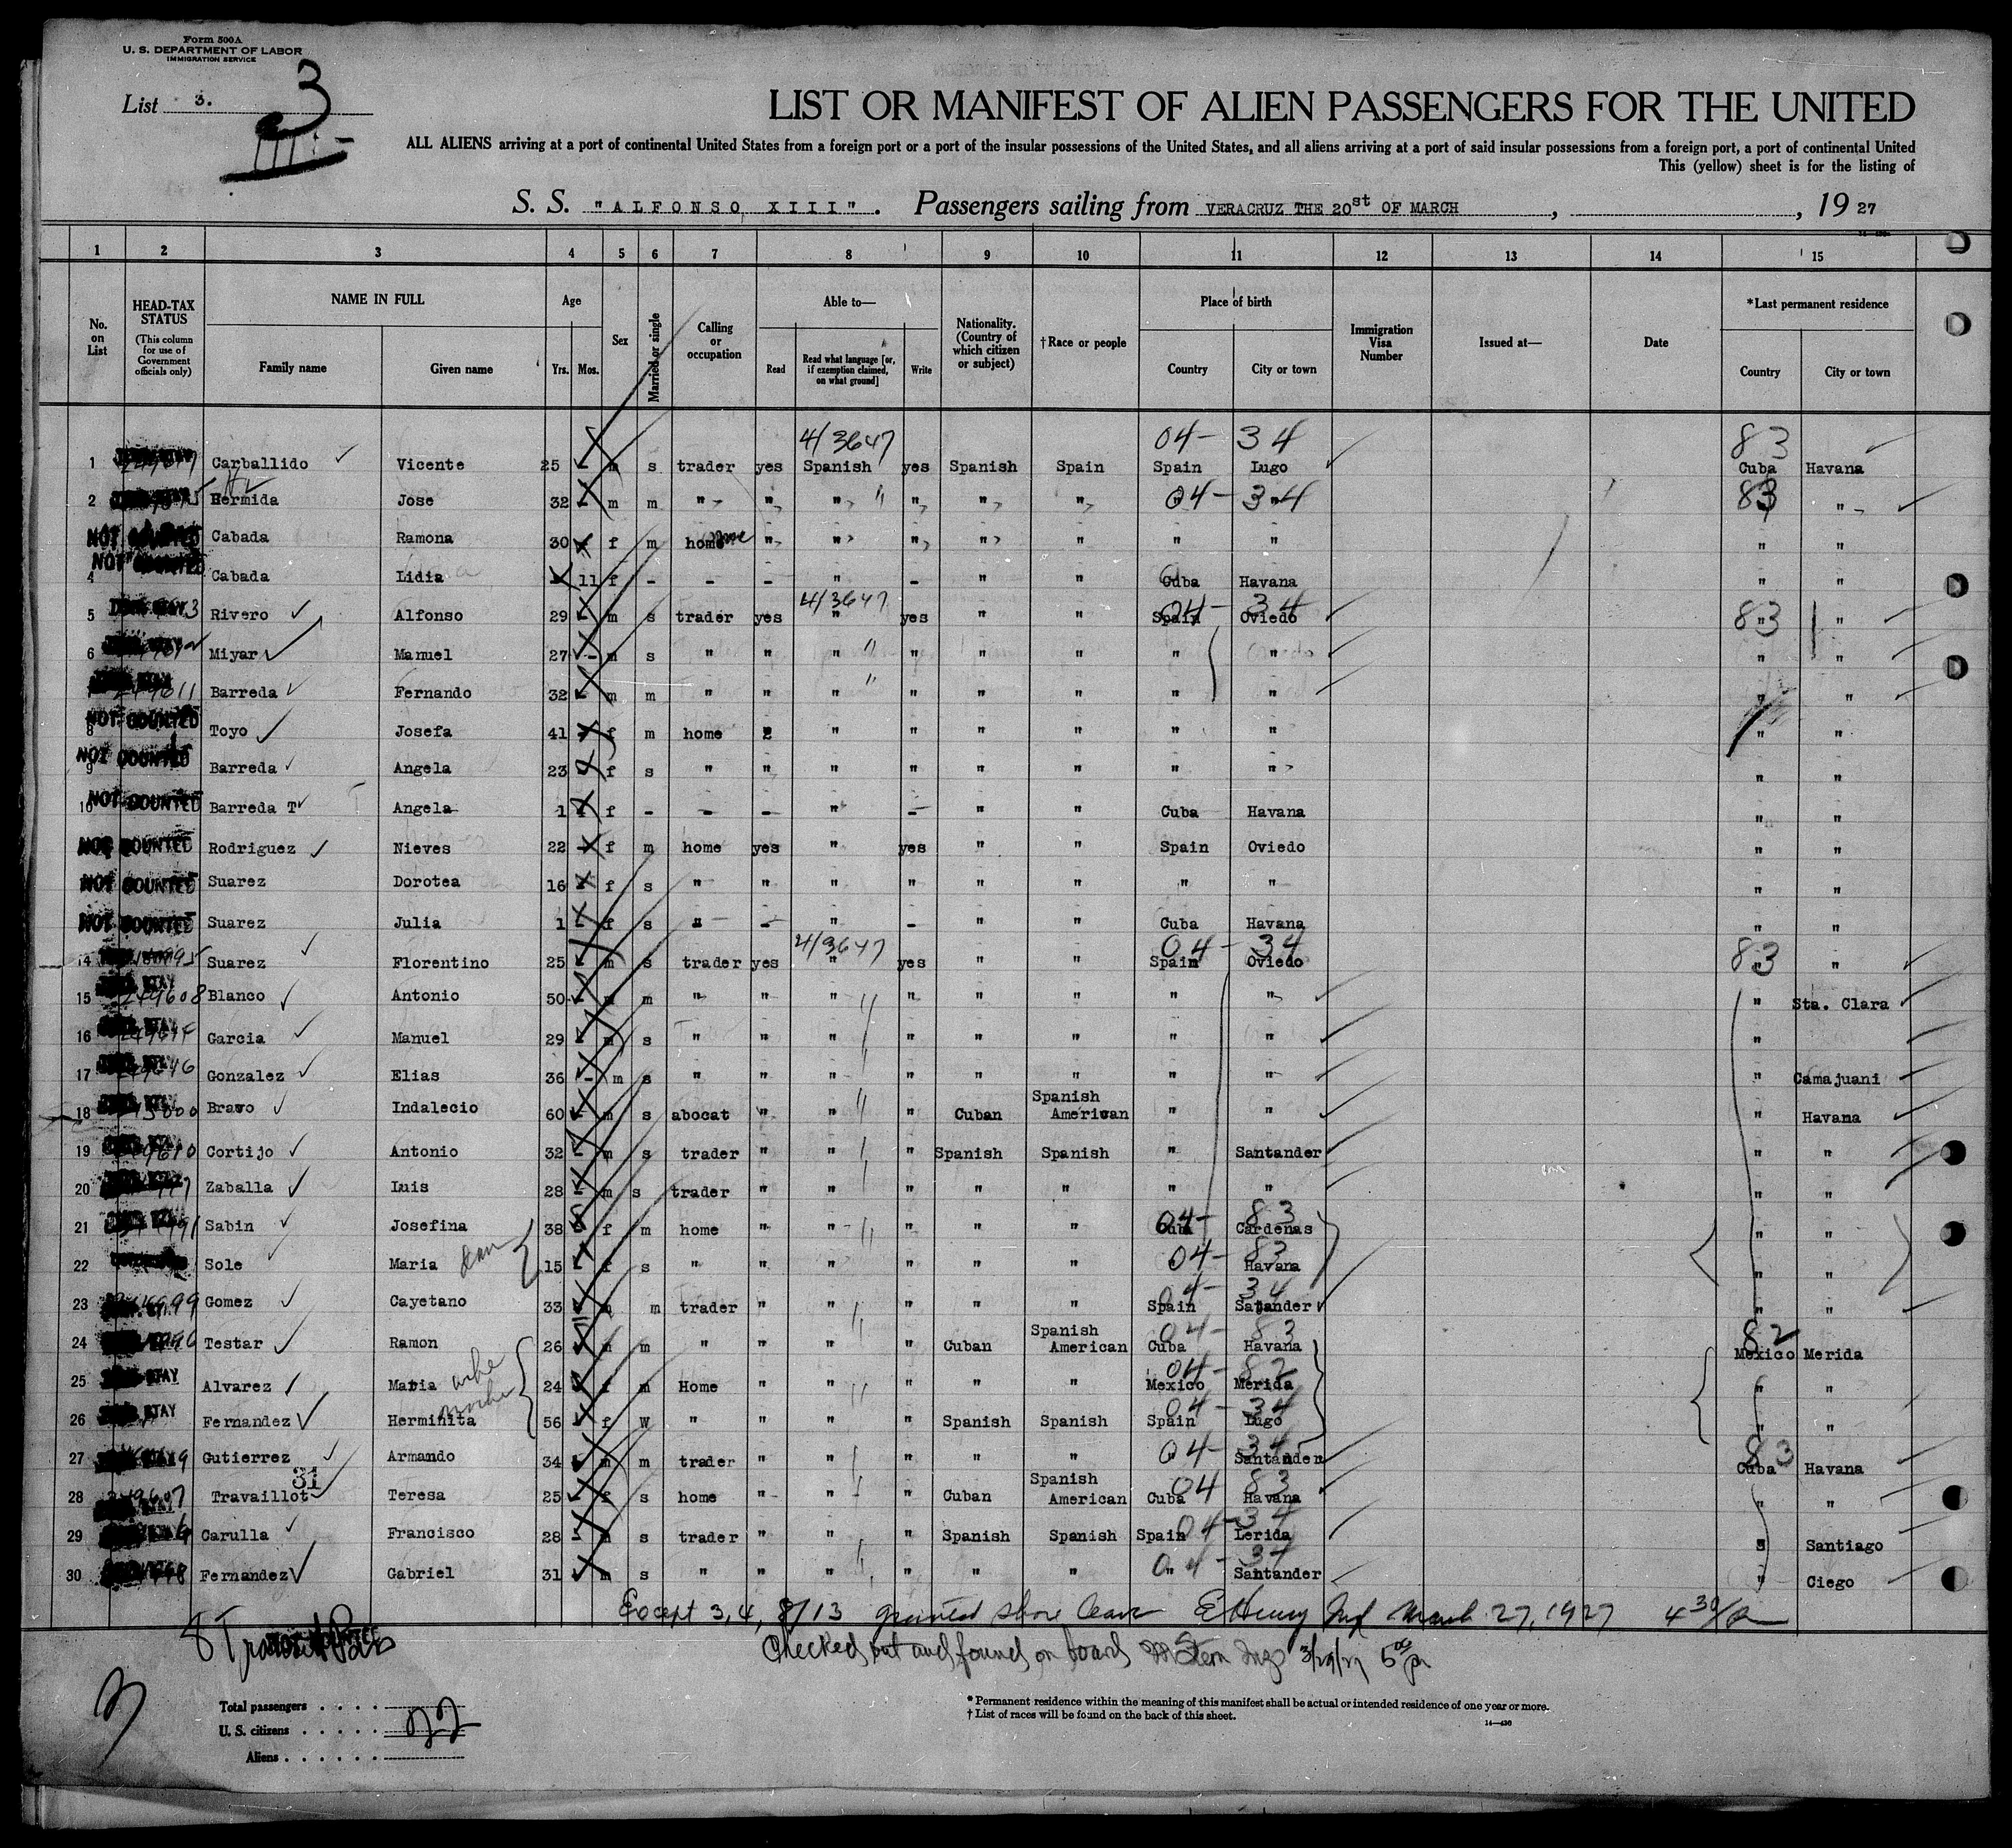 Form 500A
U. S. DEPARTMENT OF LABOR
IMMIGRATION SERVICE
List 3.
3
LIST OR MANIFEST OF ALIEN PASSENGERS FOR THE UNITED
ALL ALIENS arriving at a port of continental United States from a foreign port or a port of the insular possessions of the United States, and all aliens arriving at a port of said insular possessions from a foreign port, a port of continental United
This (yellow) sheet is for the listing of
S. S. "ALFONSO XIII". Passengers sailing from VERACRUZ THE 20st OF MARCH , , 19 27
1 2 3 4 5 6 7 8 9 10 11 12 13 14 15
No. on List
HEAD-TAX STATUS (This column for use of Government officials only)
NAME IN FULL
Family name Given name
Age
Yrs. Mos.
Sex
Married or single
Calling or occupation
Able to—
Read
Read what language [or, if exemption claimed, on what ground]
Write
Nationality. (Country of which citizen or subject)
†Race or people
Place of birth
Country City or town
Immigration Visa Number
Issued at—
Date
*Last permanent residence
Country City or town
4/3647 04- 34 83
1 Carballido Vicente 25 - m s trader yes Spanish yes Spanish Spain Spain Lugo Cuba Havana
2 Hermida Jose 32 - m m " " " " " " 04- 34 83 "
NOT COUNTED Cabada Ramona 30 f m home none " " " " " " " " "
NOT COUNTED 4 Cabada Lidia 11 f - - - " - " " Cuba Havana " "
4/3647 04- 34 83
5 Rivero Alfonso 29 - m s trader yes " yes " " Spain Oviedo " "
6 Miyar Manuel 27 - m s " " " " " " " " " "
Barreda Fernando 32 - m m " " " " " " " " " "
NOT COUNTED 8 Toyo Josefa 41 - f m home " " " " " " " "
NOT COUNTED 9 Barreda Angela 23 - f s " " " " " " " " " "
NOT COUNTED 10 Barreda T Angela 1 - f - - - " - " " Cuba Havana " "
NOT COUNTED Rodriguez Nieves 22 - f m home yes " yes " " Spain Oviedo " "
NOT COUNTED Suarez Dorotea 16 - f s " " " " " " " " " "
NOT COUNTED Suarez Julia 1 - f s - - " - " " Cuba Havana " "
4/3647 04- 34 83
14 Suarez Florentino 25 - m s trader yes " yes " " Spain Oviedo " "
15 249608 Blanco Antonio 50 - m m " " " " " " " " " Sta. Clara
16 Garcia Manuel 29 - m s " " " " " " " " " "
17 Gonzalez Elias 36 - m s " " " " " " " " " Camajuani
18 Bravo Indalecio 60 - m s abocat " " " Cuban Spanish American " " " Havana
19 Cortijo Antonio 32 - m s trader " " " Spanish Spanish " Santander " "
20 Zaballa Luis 28 - m s trader " " " " " " " " "
04- 83
21 Sabin Josefina 38 f m home " " " " " Cuba Cardenas " "
22 Sole Maria 15 - f s " " " " " " 04- 83 Havana " "
04- 34
23 Gomez Cayetano 33 - m m trader " " " " " Spain Satander " "
04- 83 82
24 Testar Ramon 26 - m m " " " " Cuban Spanish American Cuba Havana Mexico Merida
04- 82
25 Alvarez Maria wife 24 - f m Home " " " " " Mexico Merida " "
04- 34
26 Fernandez Herminita mother 56 - f W " " " " Spanish Spanish Spain Lugo " "
04- 34 83
27 Gutierrez Armando 34 - m m trader " " " " " " Santander Cuba Havana
31
04 83
28 249607 Travaillot Teresa 25 - f s home " " " Cuban Spanish American Cuba Havana " "
04- 34
29 Carulla Francisco 28 - m s trader " " " Spanish Spanish Spain Lerida Santiago
30 Fernandez Gabriel 31 - m s " " " " " " 04- 34 Santander " Ciego
Except 3, 4, 8/13 granted shore leave E Henry Insp March 27, 1927 4 30/P
Checked out and found on board Stern Insp 3/29/27 5 00 pm
Total passengers . . . .
U. S. citizens . . . . . 22
Aliens . . . . . .
* Permanent residence within the meaning of this manifest shall be actual or intended residence of one year or more.
† List of races will be found on the back of this sheet.
14—430